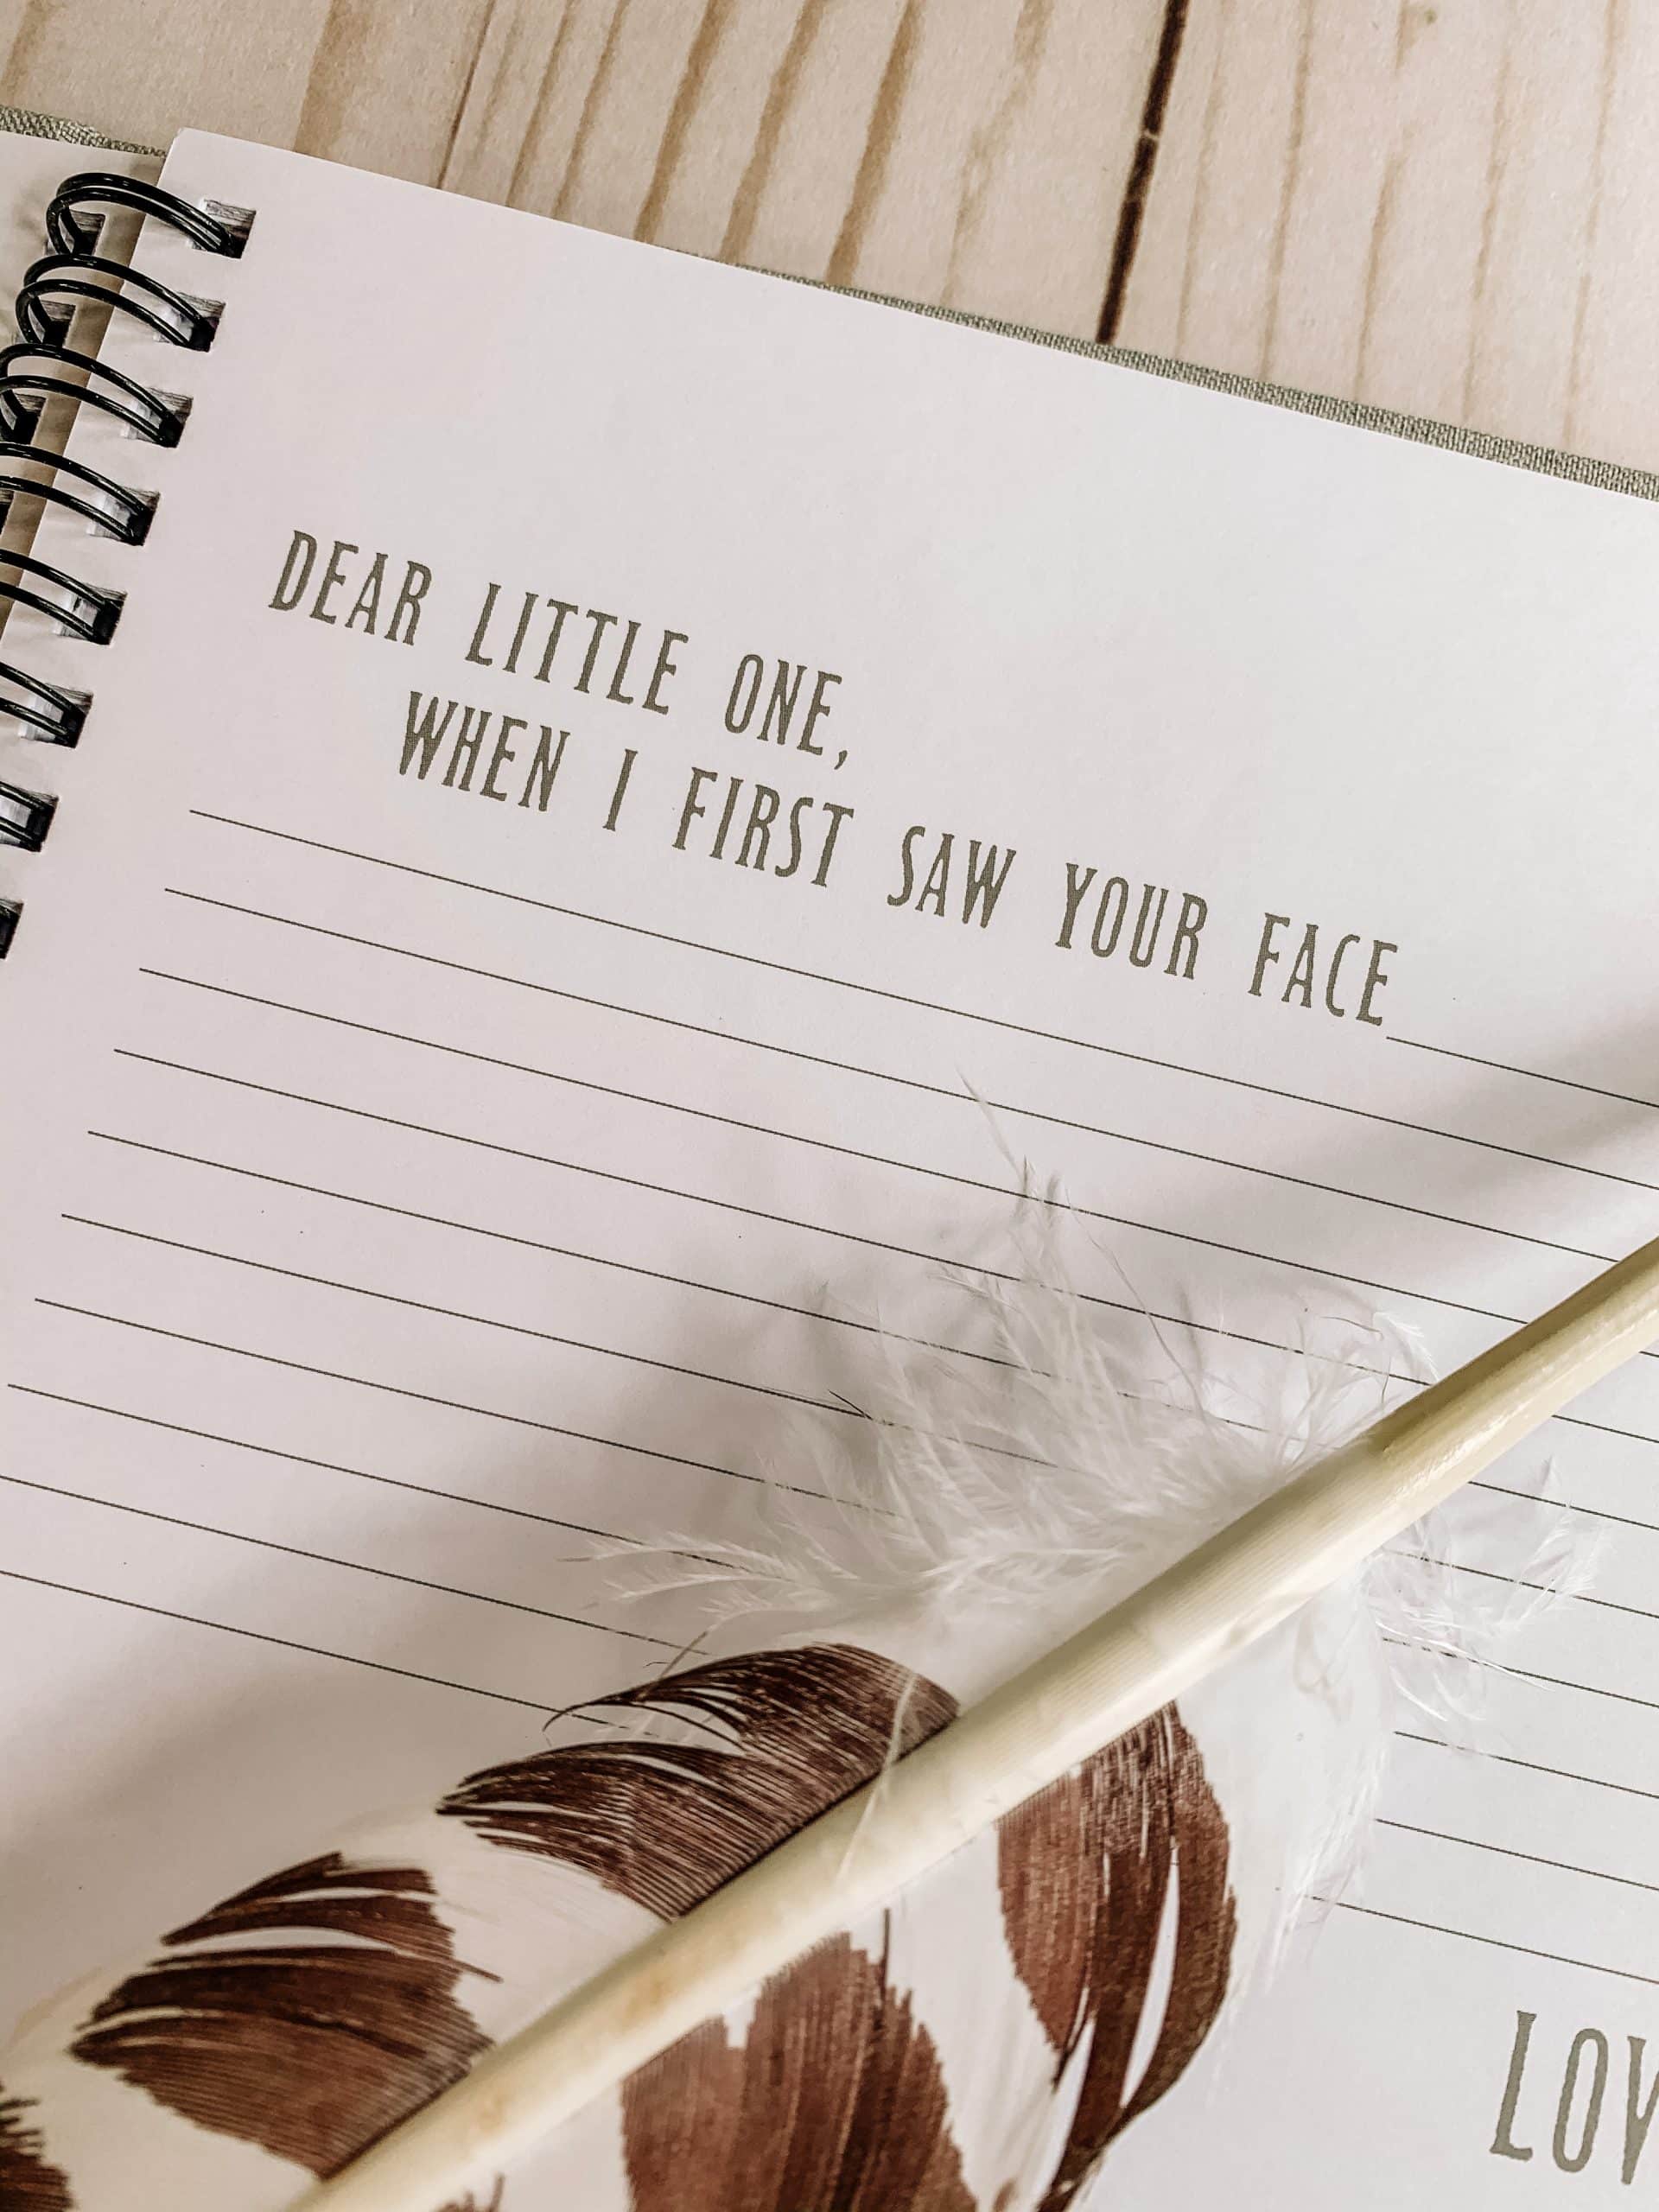 DEAR LITTLE ONE,
WHEN I FIRST SAW YOUR FACE